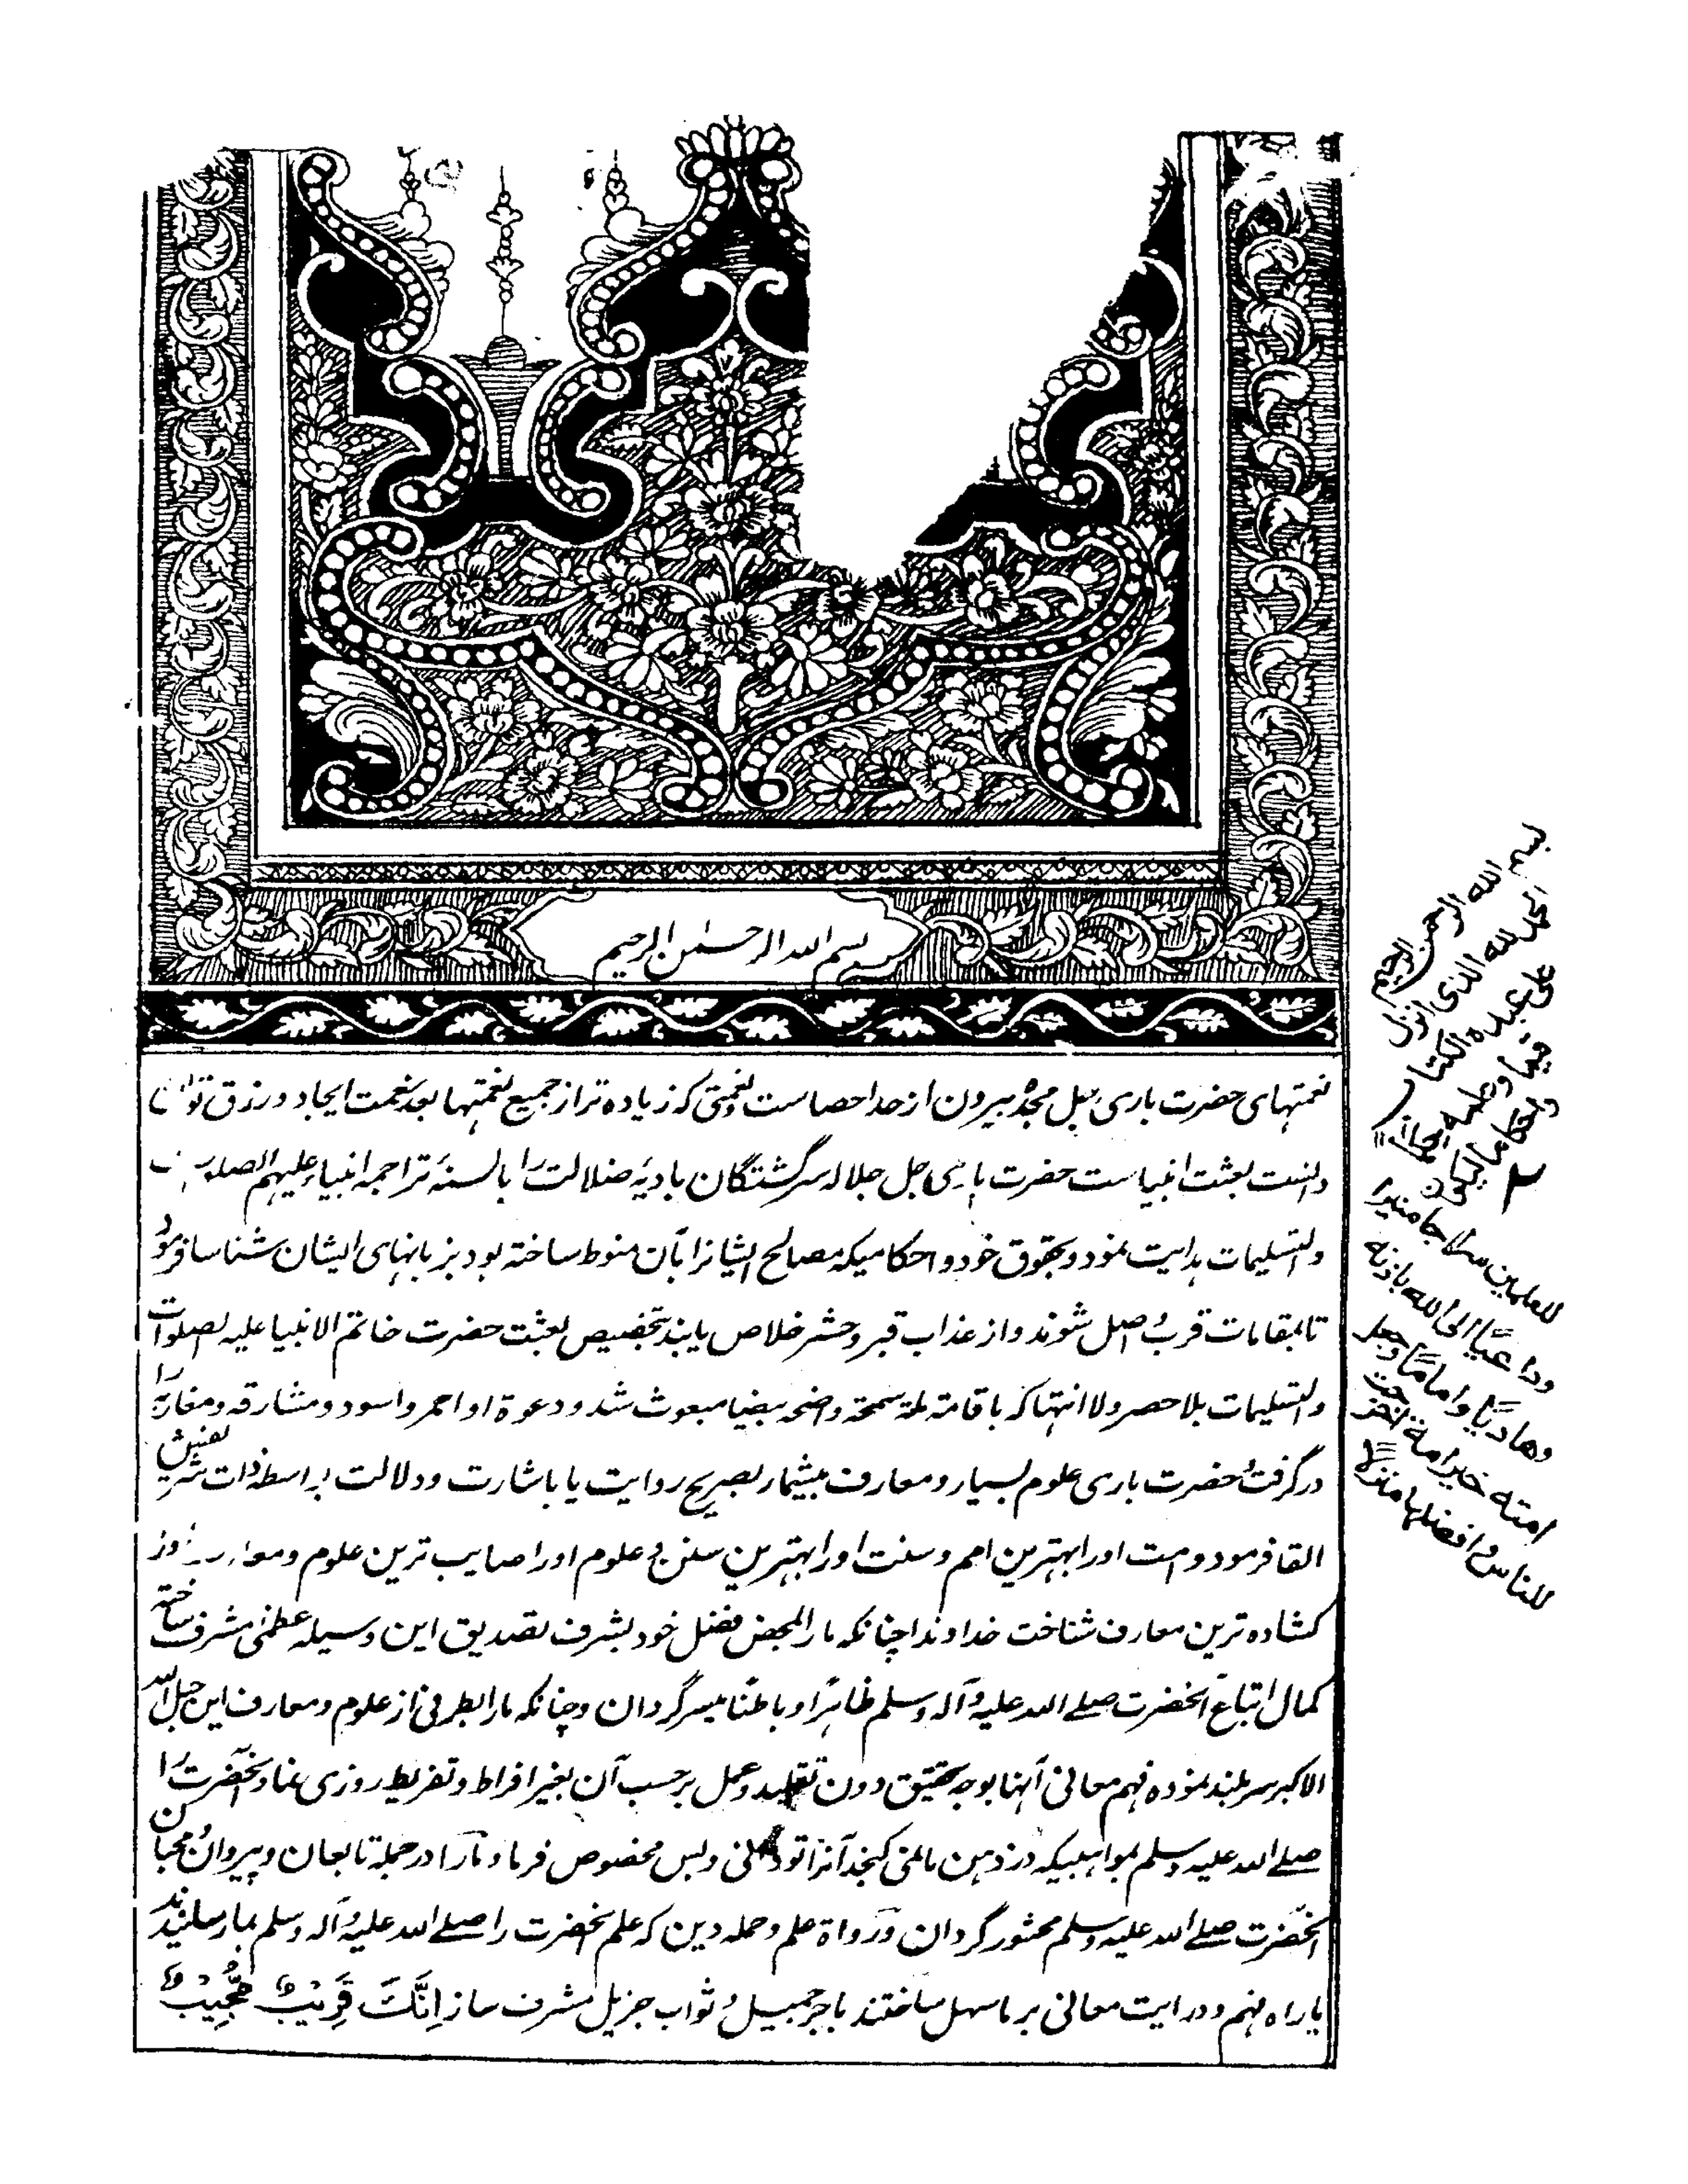 بسم الله الرحمن الرحیم
نعمتهای حضرت باری جل مجده بیرون از حد احصاست و نعمتی که زیاده تر از جمیع نعمتها بعد نعمت ایجاد و رزق توان
دانست بعثت انبیاست حضرت باری جل جلاله سرگشتگان بادیهٔ ضلالت را بالسنهٔ تراجمه انبیا علیهم
والتسلیمات هدایت نمود و بحقوق خود و احکامیکه مصالح ایشانرا بآن منوط ساخته بود بزبانهای ایشان شناسا فرمود
تا بمقامات قرب واصل شوند و از عذاب قبر و حشر خلاص یابند بتخصیص بعثت حضرت خاتم الانبیا علیه الصلوات
والتسلیمات بلا حصر ولا انتها که باقامة ملة سمحة واضحه بیضا مبعوث شد و دعوة او احمر و اسود و مشارقه و مغاربه را
در گرفت و حضرت باری علوم بسیار و معارف بیشمار بصریح روایت یا باشارت و دلالت بواسطه ذات شریف
القا فرمود و امت او را بهترین امم و سنت او را بهترین سنن و علوم او را صایب ترین علوم و معارف
کشاده ترین معارف شناخت خداوندا چنانکه ما را بمحض فضل خود بشرف تصدیق این وسیله عظمی مشرف ساخته
کمال اتباع آنحضرت صلی الله علیه وآله وسلم ظاهرا و باطنا میسر گردان و چنانکه ما را بطرفی از علوم و معارف این حبل الله
الاکبر سربلند نموده فهم معانی آنها بوجه تحقیق دون تقلید و عمل بر حسب آن بغیر افراط و تفریط روزی نما و آنحضرت را
صلی الله علیه وسلم بمواهبیکه در ذهن ما نمی گنجد آنرا تو دانی و بس مخصوص فرما و ما را در جمله تابعان و پیروان و محبان
آنحضرت صلی الله علیه وسلم محشور گردان و رواة علم و حمله دین که علم آنحضرت را صلی الله علیه وآله وسلم بما رسانیدند
یا راه فهم و درایت معانی بر ما سهل ساختند باجر جمیل و ثواب جزیل مشرف ساز اِنَّكَ قَرِيبٌ مُّجِيبٌ
بسم الله الرحمن الرحیم
الحمد لله الذی انزل
علی عبده الکتاب
۲
للعلمین سراجا منیرا
وداعیًا الی الله باذنه
وهادیًا وامامًا وجعل
امته خیر امة اخرجت
للناس وافضلها منزلا